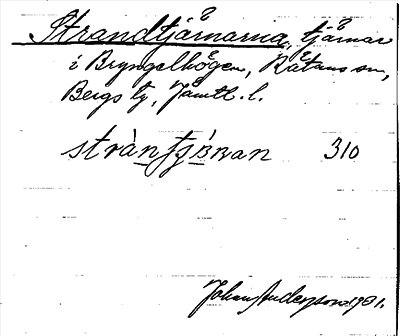 Strandtjärnarna, tjärnar
i Bryngelhögen, Rätans sn,
Bergs tg, Jämtl. l.
stràntjɷ̀nan 310
Johan Anderson 1931.